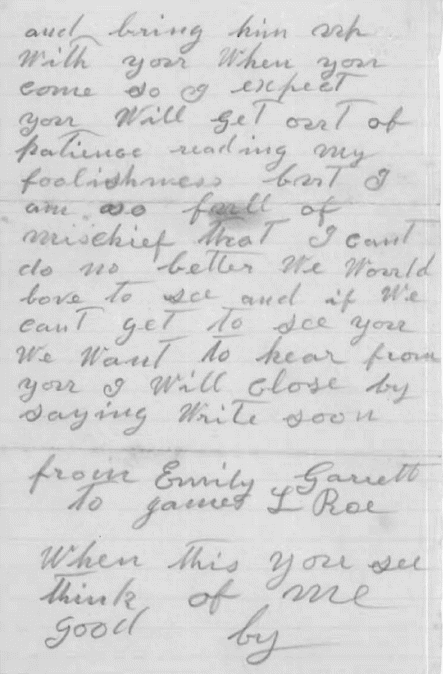 and bring him up
With your When you
come so I expect
you Will get out of
patience reading my
foolishness but I
am so full of
mischief that I cant
do no better We Would
love to see and if We
cant get to see you
We Want to hear from
you I Will close by
saying Write soon
from Emily Garrett
to James L Roe
When this you see
think of me
good by